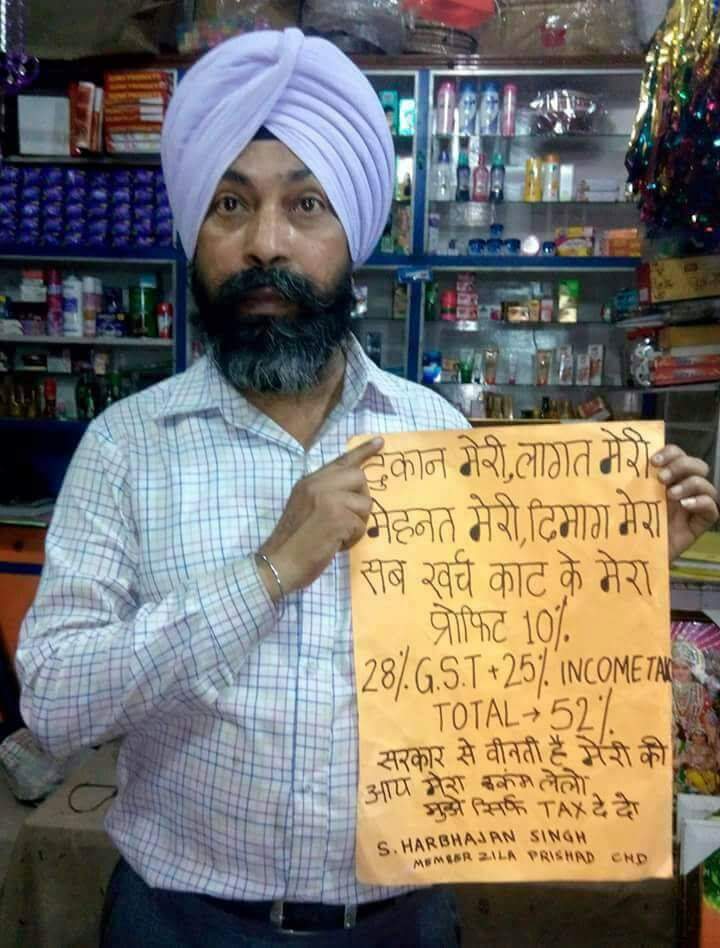 दुकान मेरी, लागत मेरी
मेहनत मेरी, दिमाग मेरा
सब खर्च काट के मेरा
प्रोफिट 10%.
28%. G.S.T + 25%. INCOME TAX
TOTAL → 52%.
सरकार से वीनती है मेरी की
आप मेरा इकंम लेलो
मुझे सिर्फ TAX दे दो
S. HARBHAJAN SINGH
MEMBER ZILA PRISHAD CHD